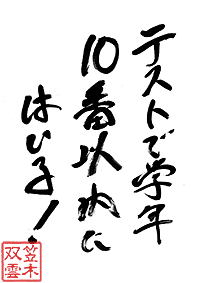 テストで学年
10番以内に
はひる!
笠木
双雲